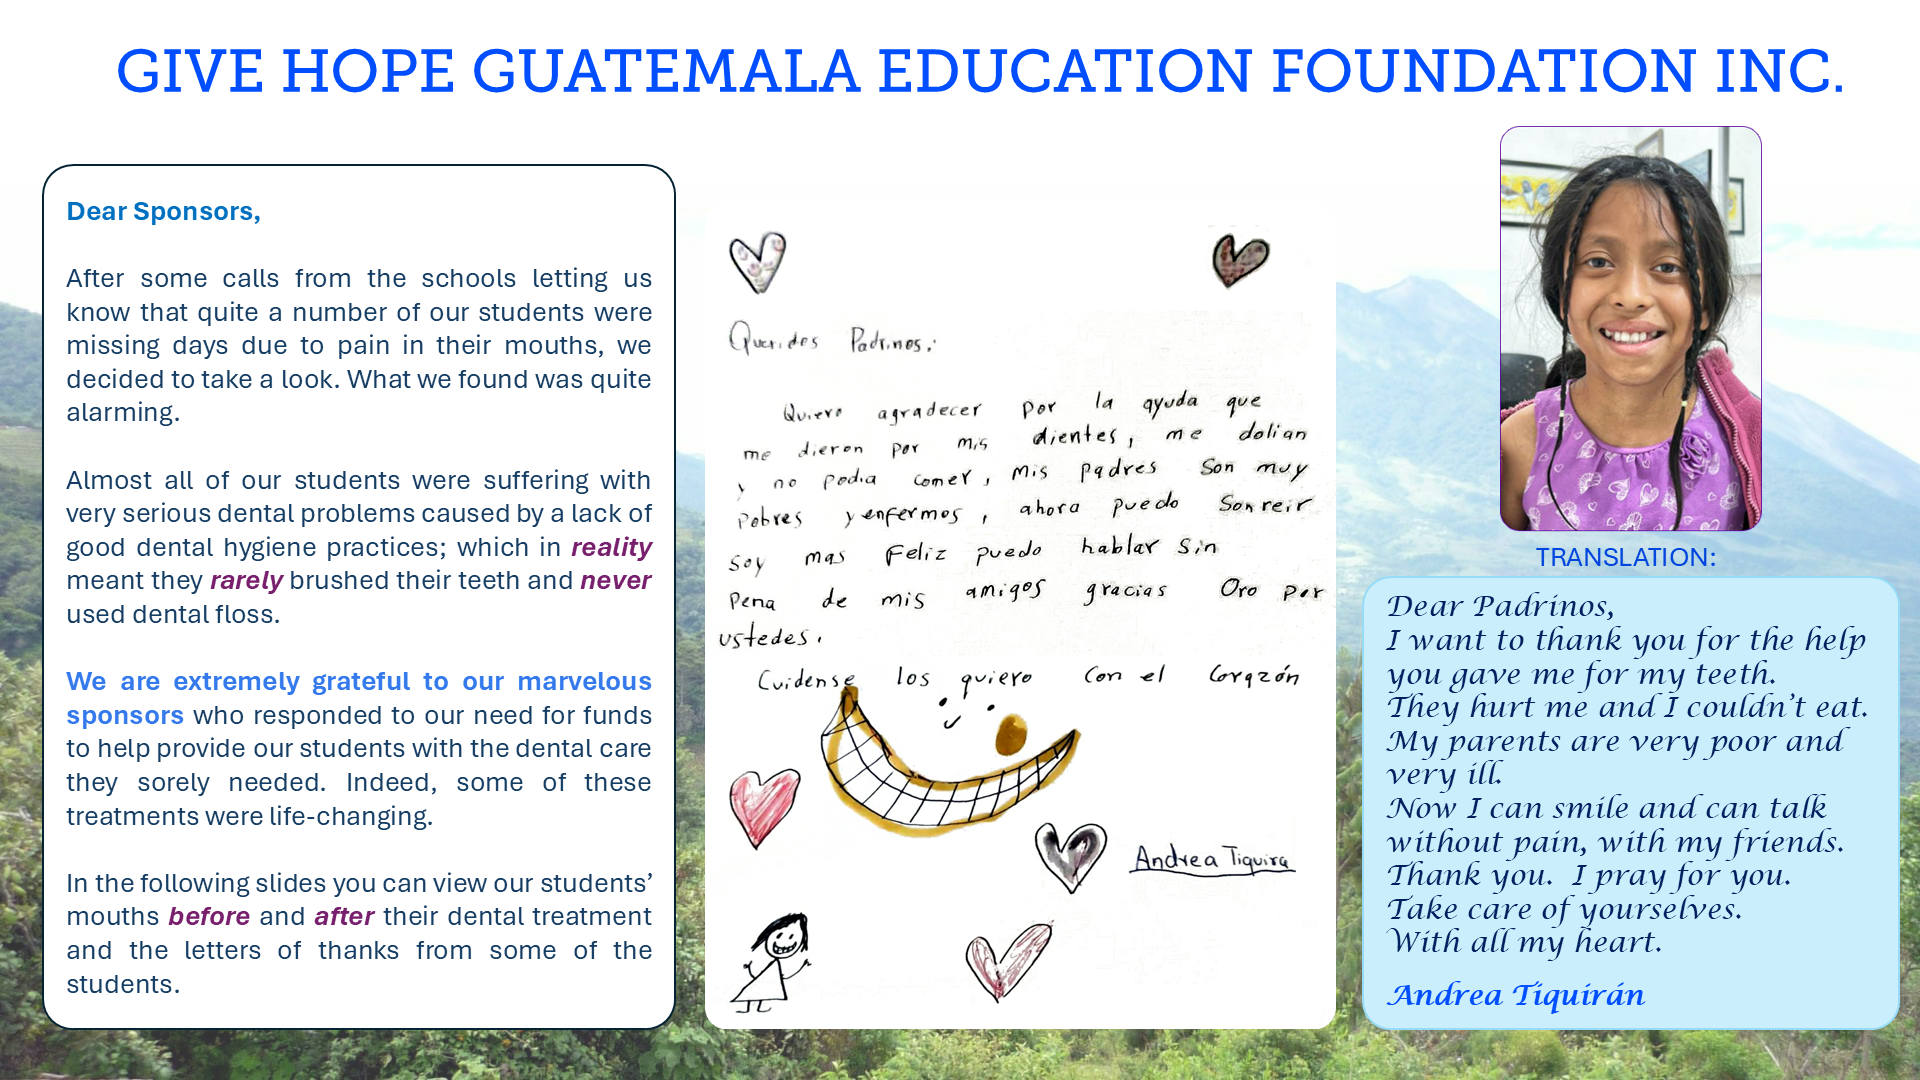 GIVE HOPE GUATEMALA EDUCATION FOUNDATION INC.
Dear Sponsors,
After some calls from the schools letting us
know that quite a number of our students were
missing days due to pain in their mouths, we
decided to take a look. What we found was quite
alarming.
Almost all of our students were suffering with
very serious dental problems caused by a lack of
good dental hygiene practices; which in reality
meant they rarely brushed their teeth and never
used dental floss.
We are extremely grateful to our marvelous
sponsors who responded to our need for funds
to help provide our students with the dental care
they sorely needed. Indeed, some of these
treatments were life-changing.
In the following slides you can view our students’
mouths before and after their dental treatment
and the letters of thanks from some of the
students.
Querides Padrinos:
Quiero agradecer por la ayuda que
me dieron por mis dientes, me dolian
y no podia comer, mis padres son muy
pobres y enfermos, ahora puedo Sonreir
soy mas Feliz puedo hablar sin
pena de mis amigos gracias Oro por
ustedes.
Cuidense los quiero con el Corazón
Andrea Tiquira
TRANSLATION:
Dear Padrinos,
I want to thank you for the help
you gave me for my teeth.
They hurt me and I couldn’t eat.
My parents are very poor and
very ill.
Now I can smile and can talk
without pain, with my friends.
Thank you. I pray for you.
Take care of yourselves.
With all my heart.
Andrea Tiquirán